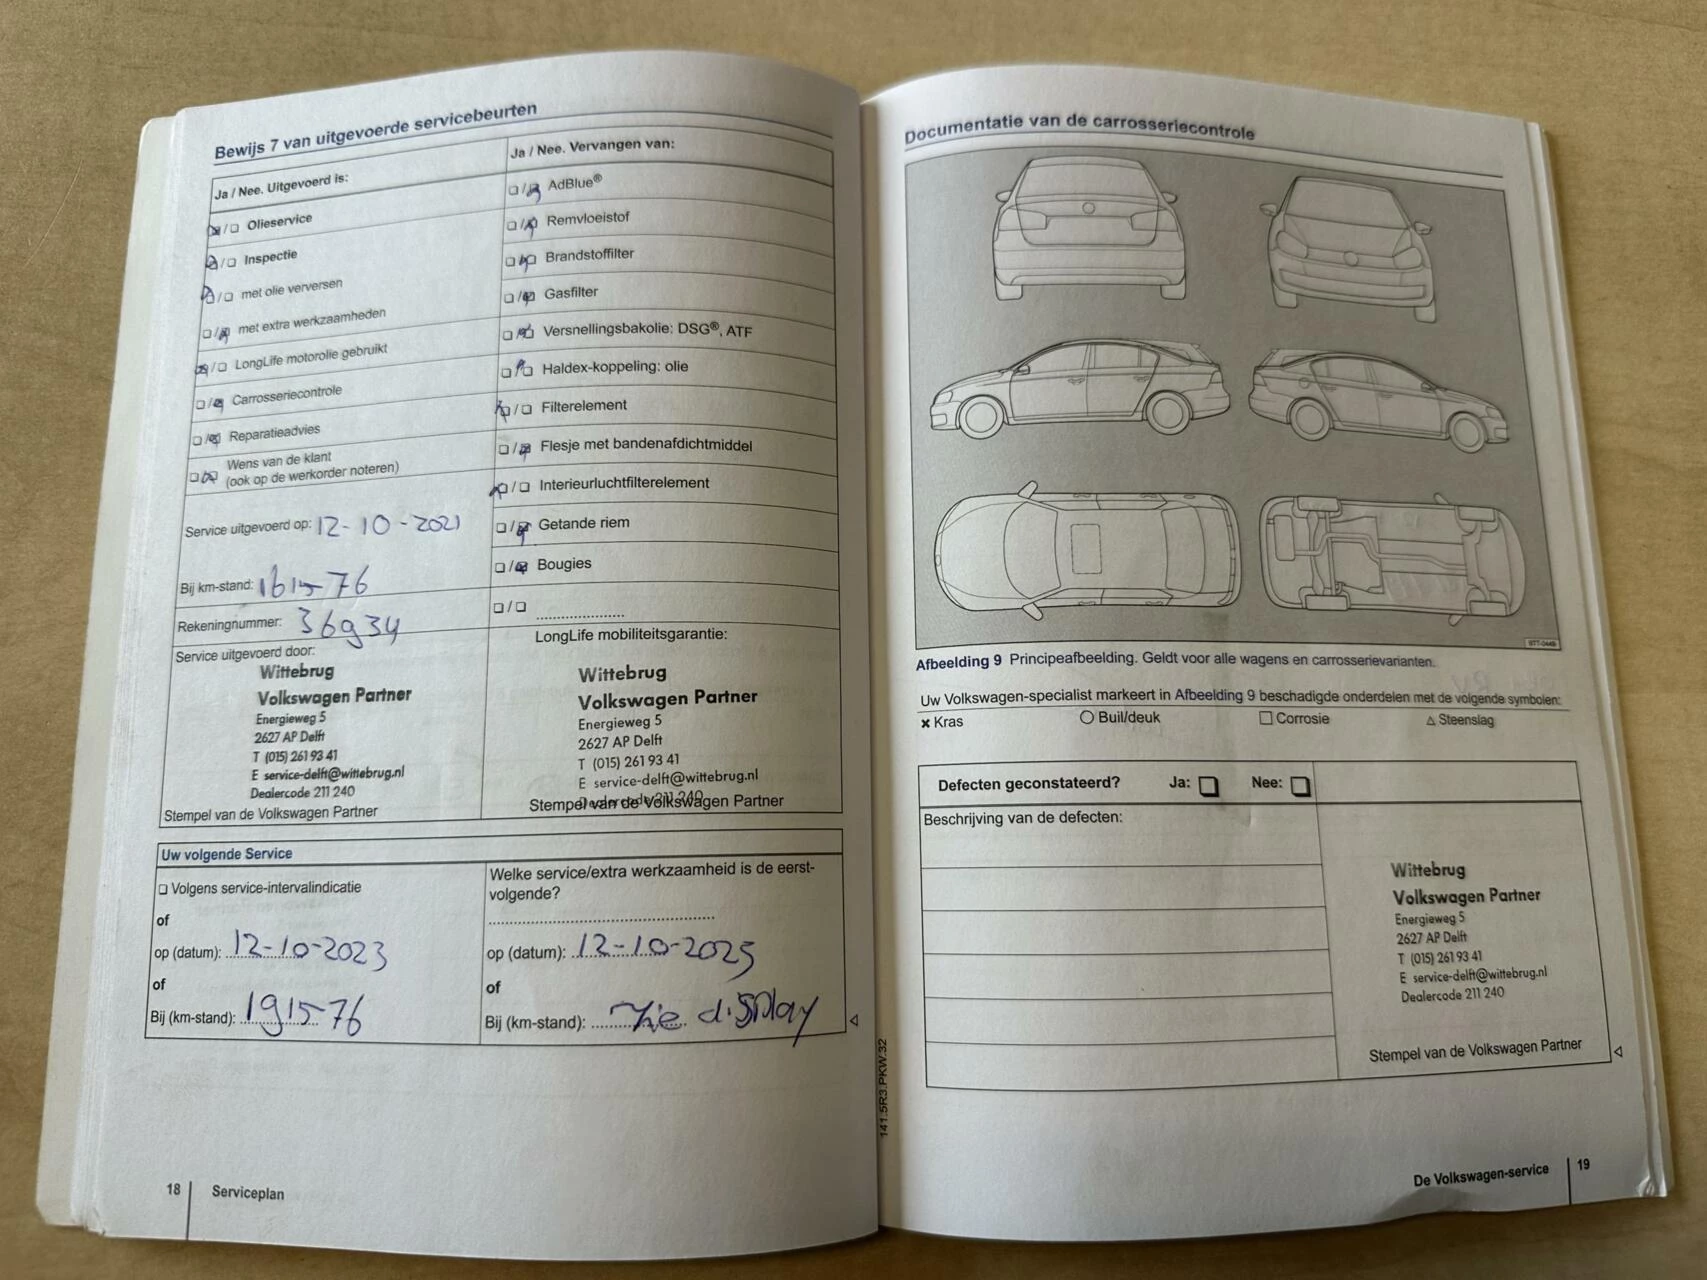 Bewijs 7 van uitgevoerde servicebeurten
Ja / Nee. Uitgevoerd is:
Olieservice
Inspectie
met olie verversen
met extra werkzaamheden
LongLife motorolie gebruikt
Carrosseriecontrole
Reparatieadvies
Wens van de klant
(ook op de werkorder noteren)
Service uitgevoerd op: 12-10-2021
Bij km-stand: 161576
Rekeningnummer: 36934
Service uitgevoerd door:
Wittebrug
Volkswagen Partner
Energieweg 5
2627 AP Delft
T (015) 261 93 41
E service-delft@wittebrug.nl
Dealercode 211 240
Stempel van de Volkswagen Partner
Ja / Nee. Vervangen van:
AdBlue®
Remvloeistof
Brandstoffilter
Gasfilter
Versnellingsbakolie: DSG®, ATF
Haldex-koppeling: olie
Filterelement
Flesje met bandenafdichtmiddel
Interieurluchtfilterelement
Getande riem
Bougies
LongLife mobiliteitsgarantie:
Wittebrug
Volkswagen Partner
Energieweg 5
2627 AP Delft
T (015) 261 93 41
E service-delft@wittebrug.nl
Dealercode 211 240
Stempel van de Volkswagen Partner
Uw volgende Service
Volgens service-intervalindicatie
of
op (datum): 12-10-2023
of
Bij (km-stand): 191576
Welke service/extra werkzaamheid is de eerst-
volgende?
op (datum): 12-10-2025
of
Bij (km-stand): zie display
18 Serviceplan
141.5R3.PKW.32
Documentatie van de carrosseriecontrole
BTT-0449
Afbeelding 9 Principeafbeelding. Geldt voor alle wagens en carrosserievarianten.
Uw Volkswagen-specialist markeert in Afbeelding 9 beschadigde onderdelen met de volgende symbolen:
Kras Buil/deuk Corrosie Steenslag
Defecten geconstateerd? Ja: Nee:
Beschrijving van de defecten:
Wittebrug
Volkswagen Partner
Energieweg 5
2627 AP Delft
T (015) 261 93 41
E service-delft@wittebrug.nl
Dealercode 211 240
Stempel van de Volkswagen Partner
De Volkswagen-service 19